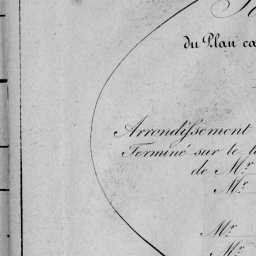 du Plan ca
Arrondissement
Terminé sur le
de Mr
Mr
Mr
Mr